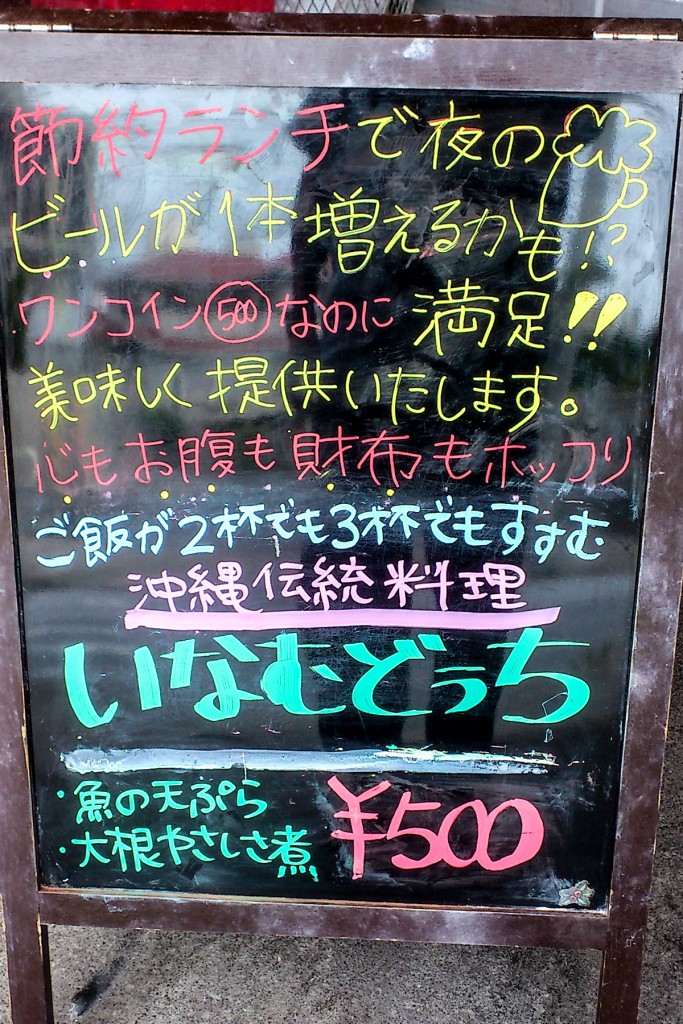 節約ランチで夜の
ビールが1本増えるかも!?
ワンコイン500なのに満足!!
美味しく提供いたします。
心もお腹も財布もホッコリ
ご飯が2杯でも3杯でもすすむ
沖縄伝統料理
いなむどぅち
・魚の天ぷら
・大根やさしさ煮
¥500